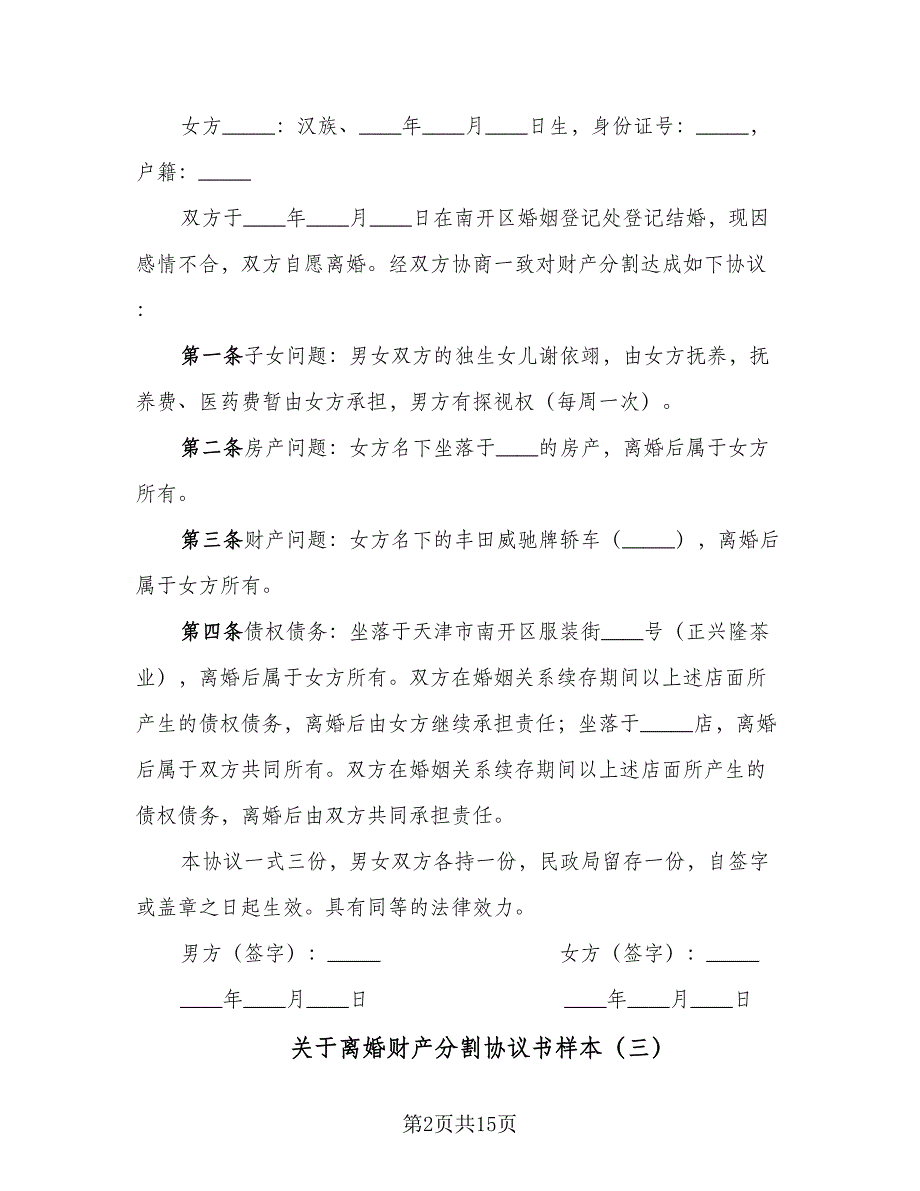 女方_____：汉族、____年____月____日生，身份证号：_____，
户籍：_____
双方于____年____月____日在南开区婚姻登记处登记结婚，现因
感情不合，双方自愿离婚。经双方协商一致对财产分割达成如下协议
：
第一条子女问题：男女双方的独生女儿谢依翊，由女方抚养，抚
养费、医药费暂由女方承担，男方有探视权（每周一次）。
第二条房产问题：女方名下坐落于____的房产，离婚后属于女方
所有。
第三条财产问题：女方名下的丰田威驰牌轿车（_____），离婚后
属于女方所有。
第四条债权债务：坐落于天津市南开区服装街____号（正兴隆茶
业），离婚后属于女方所有。双方在婚姻关系续存期间以上述店面所
产生的债权债务，离婚后由女方继续承担责任；坐落于_____店，离婚
后属于双方共同所有。双方在婚姻关系续存期间以上述店面所产生的
债权债务，离婚后由双方共同承担责任。
本协议一式三份，男女双方各持一份，民政局留存一份，自签字
或盖章之日起生效。具有同等的法律效力。
男方（签字）：_____ 女方（签字）：_____
____年____月____日 ____年____月____日
关于离婚财产分割协议书样本（三）
第2页共15页